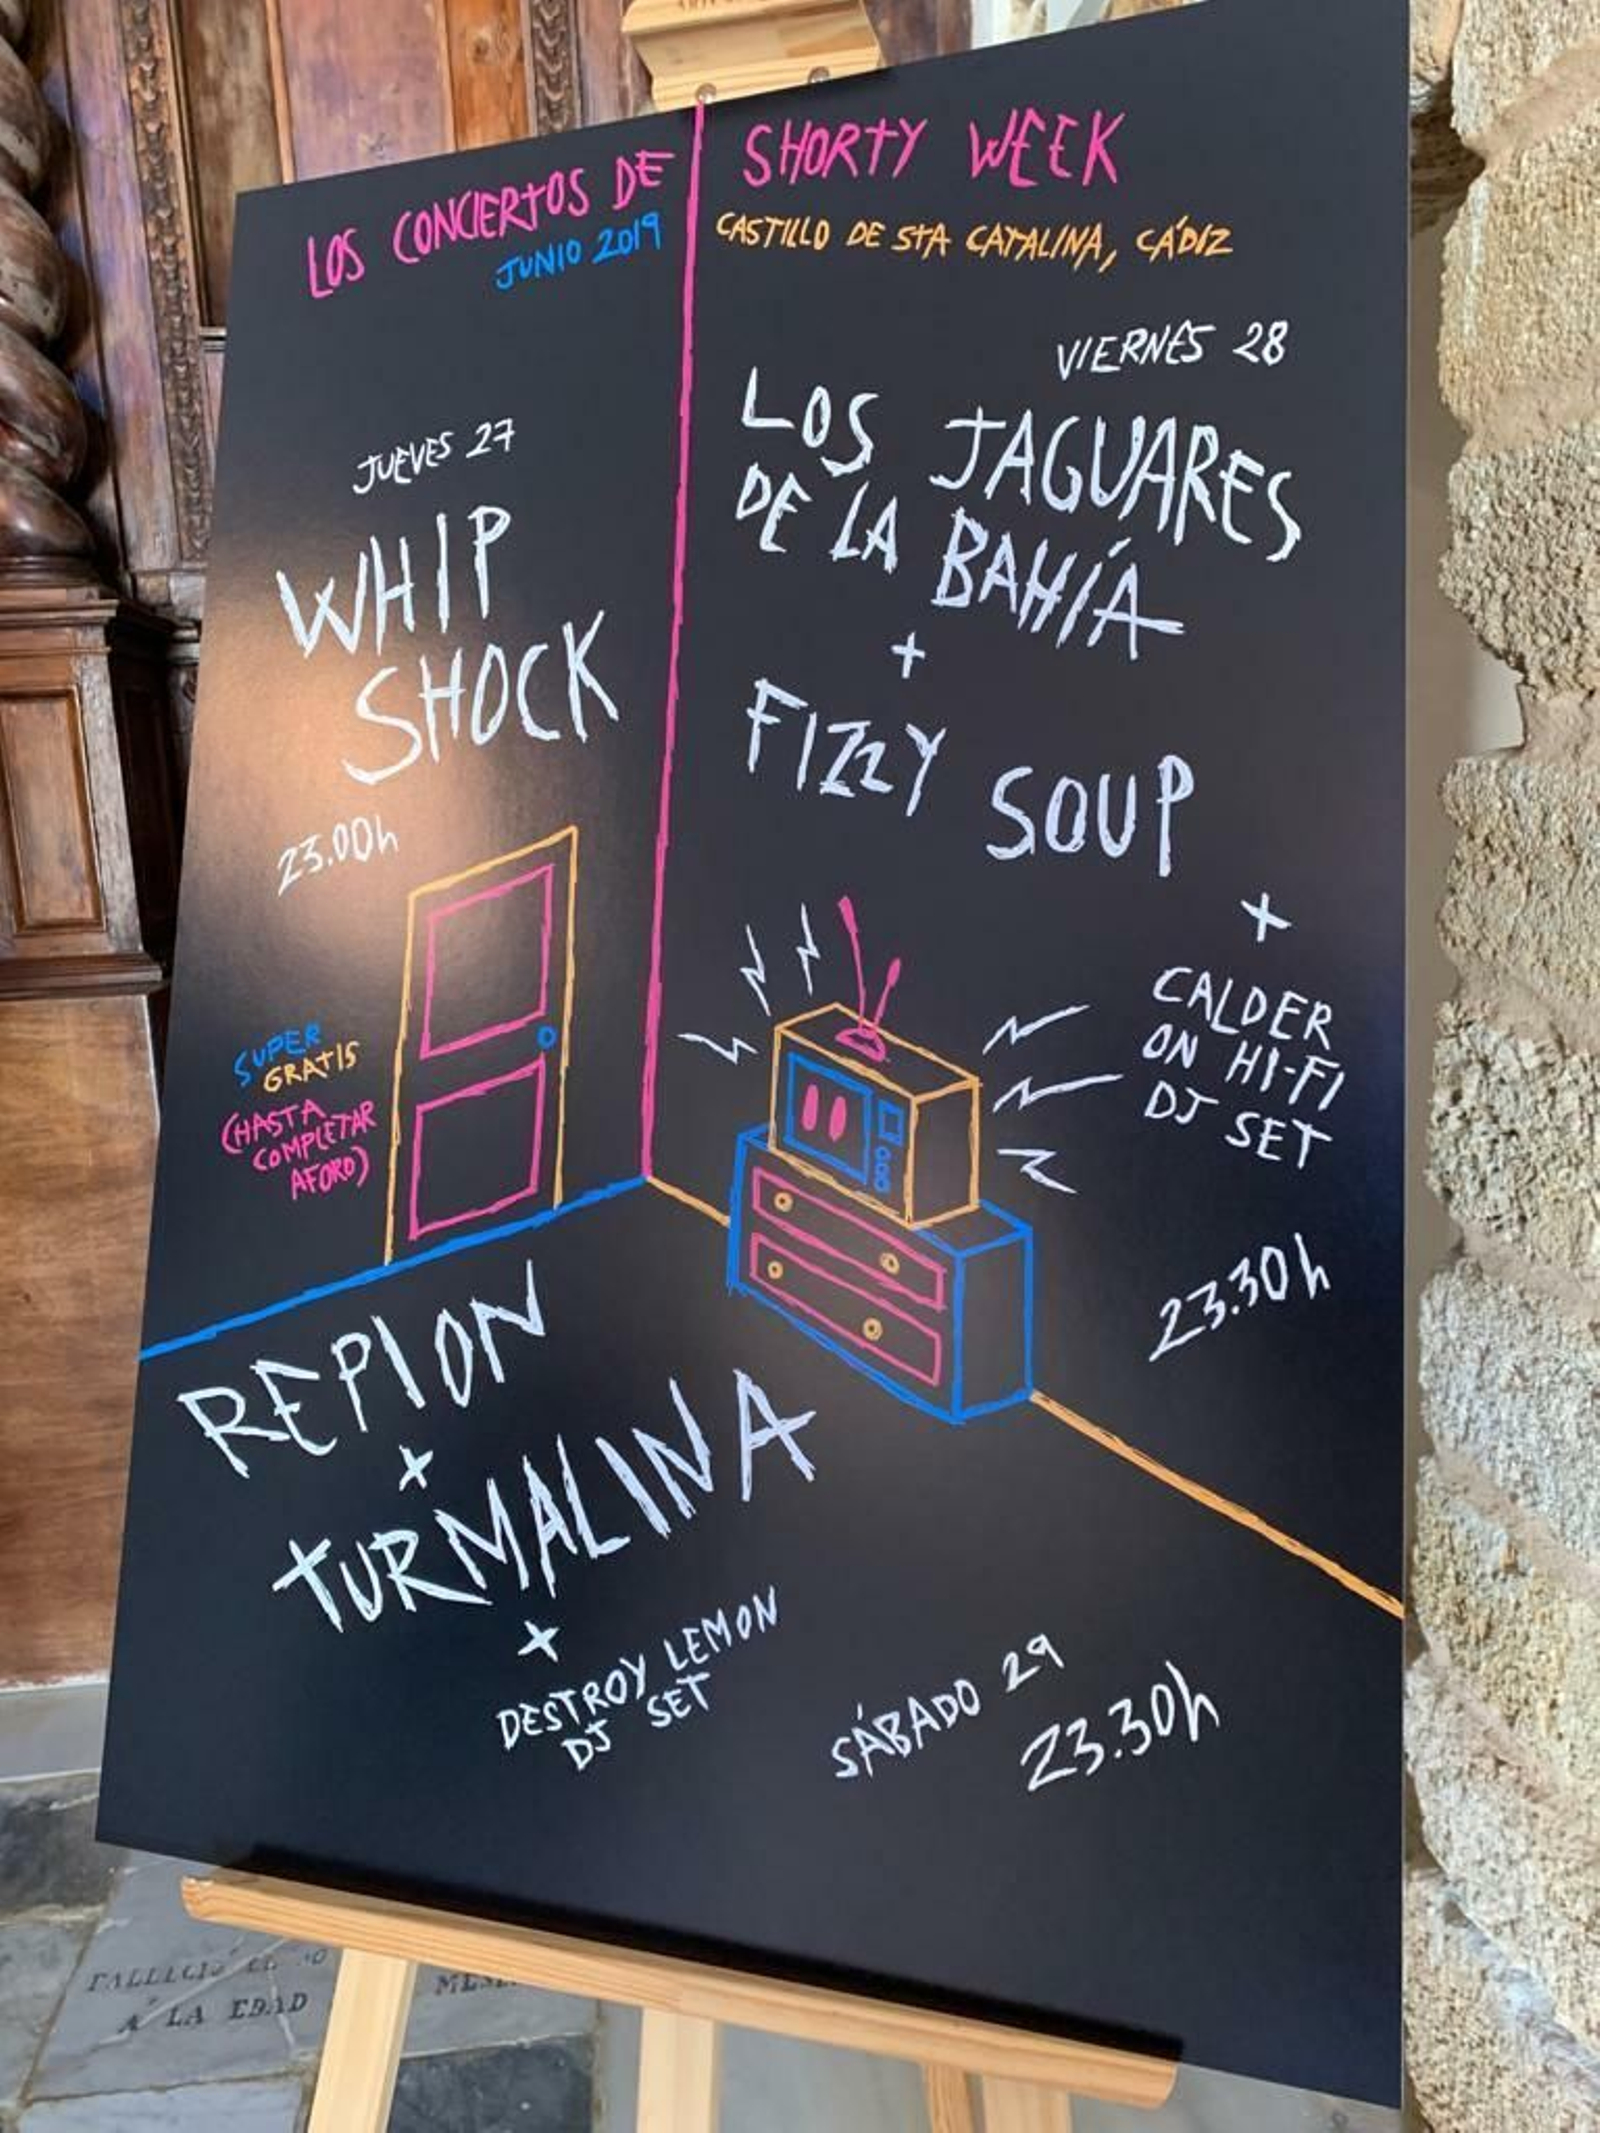 LOS CONCIERTOS DE SHORTY WEEK
JUNIO 2019
CASTILLO DE STA CATALINA, CÁDIZ
JUEVES 27
WHIP
SHOCK
23.00h
VIERNES 28
LOS JAGUARES
DE LA BAHÍA
+
FIZZY SOUP
+
CALDER
ON HI-FI
DJ SET
23.30h
SUPER
GRATIS
(HASTA
COMPLETAR
AFORO)
REPION
+
TURMALINA
+
DESTROY LEMON
DJ SET
SÁBADO 29
23.30h
A LA EDAD